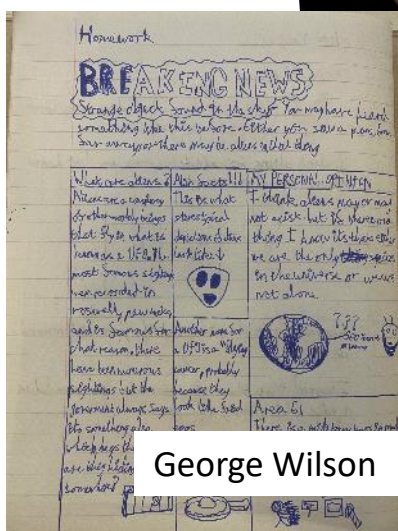 Homework
BREAKING NEWS
Strange object found in the sky? You may have heard
something like this before. Either you saw a plane, from
far away or there may be aliens in that thing
What are aliens?
Aliens are a
of other worldly beings
that fly in what is
known as a U.F.O. The
most famous sighting
was recorded in
roswell, new
and is famous for
that reason, there
have been numerous
sightings but the
government always says
it's something else
which begs the
are they hiding
somewhere?
Alien facts!!!
This is what
stereotypical
depictions of aliens
look like ↓
Another name for
a UFO is a "flying
saucer", probably
because they
look like fried
eggs
MY PERSONAL OPINION
I think aliens may or may
not exist but if there's one
thing I know it's that either
we are the only species
in the universe or we're
not alone.
???
Area 51
There is a
George Wilson